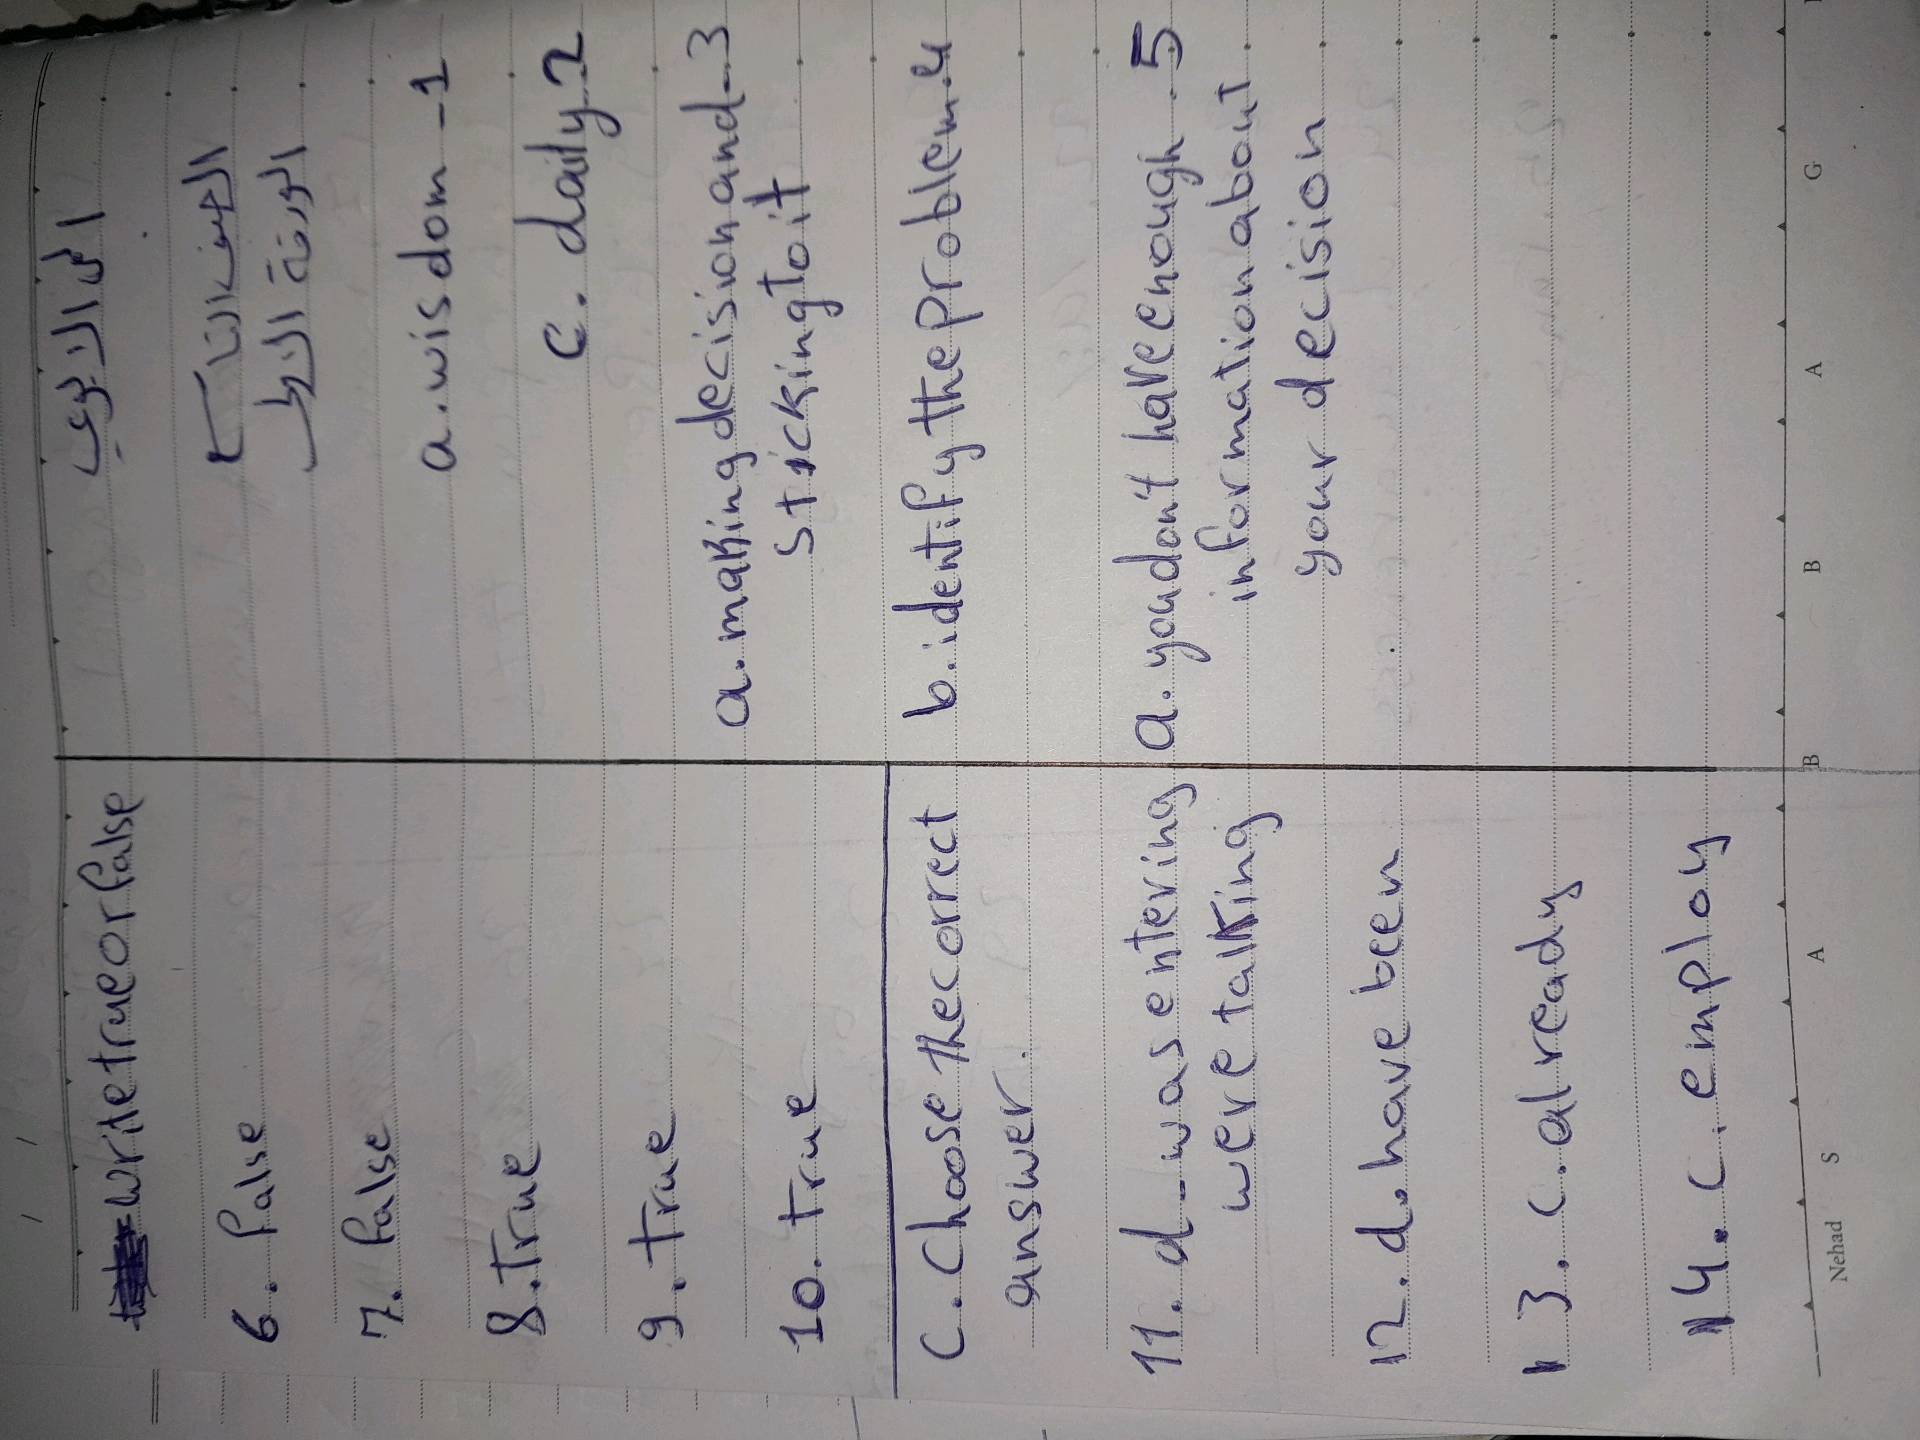 الحل الاديي
الصف الثالث
الورقة الاولى
a.wisdom -1
c. daily 2
a.making decision and 3
sticking to it
b.identify the problem.4
a. you don't have enough .5
information about
your decision
write true or false
6. false
7. false
8. True
9. True
10. true
C. Choose the correct
answer.
11. d - was entering
were talking
12. d. have been
13. c. already
14. c. employ
Nehad S A B B A G